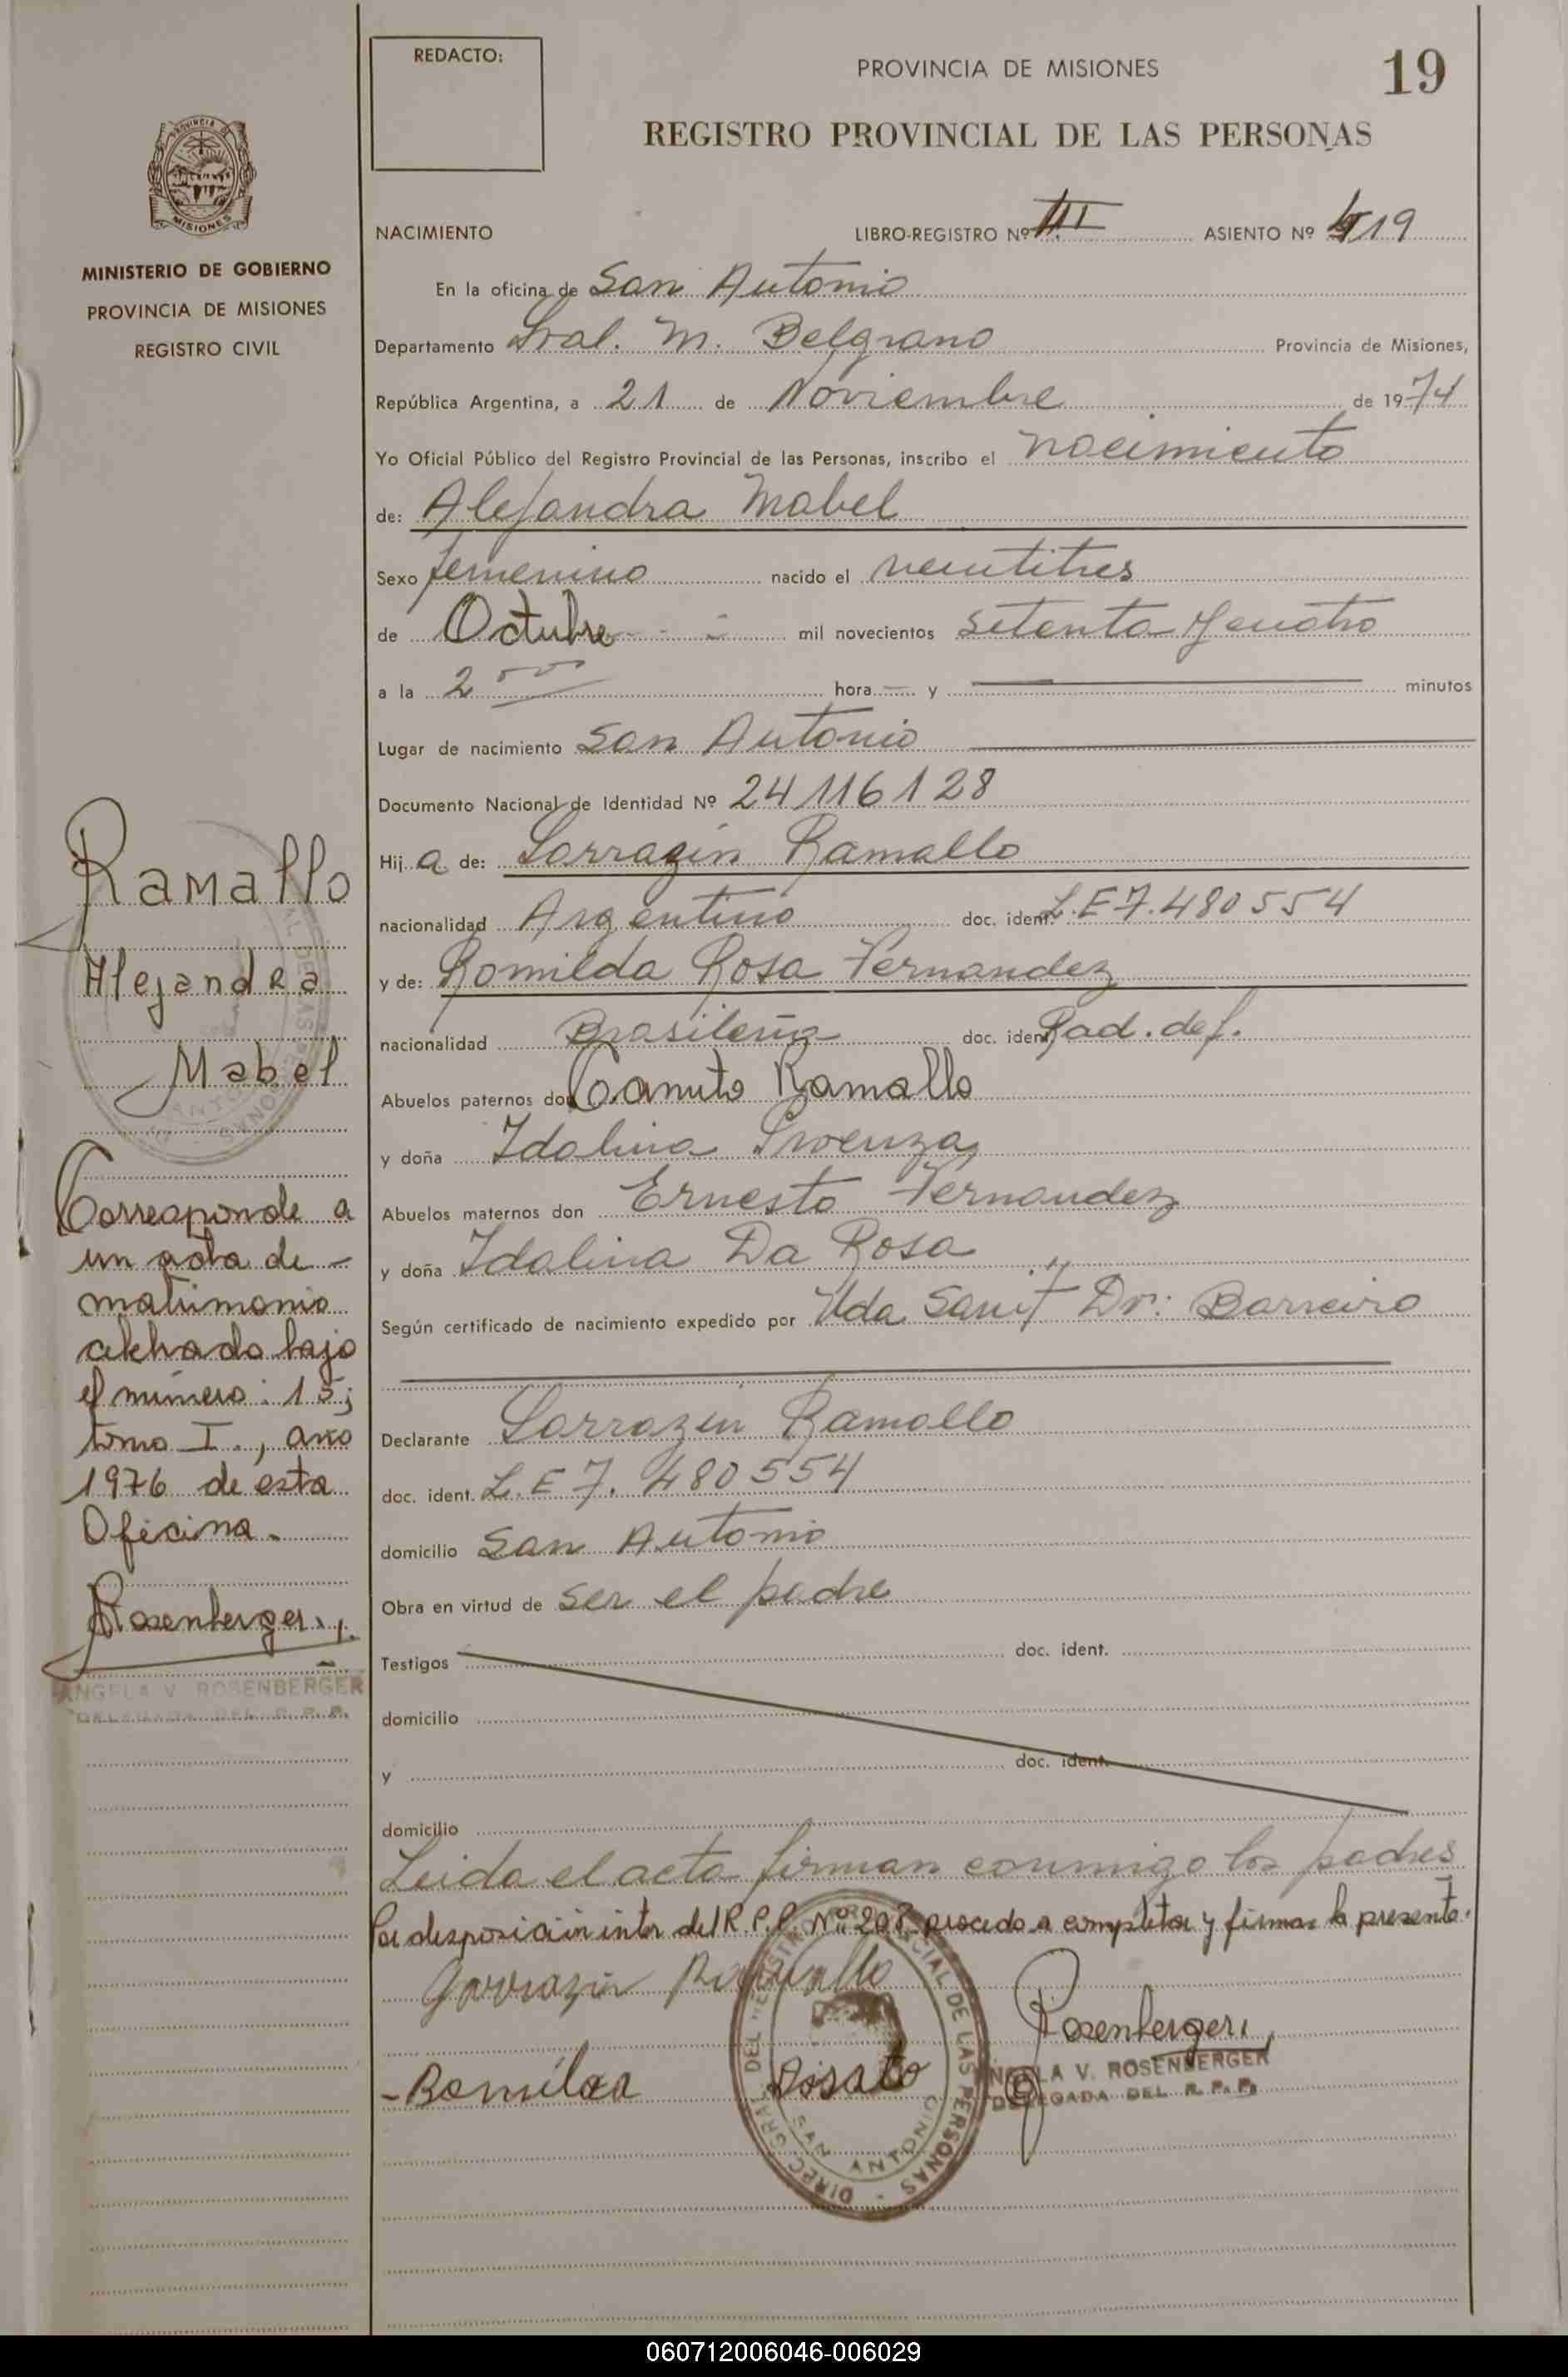 REDACTO:
PROVINCIA DE MISIONES
19
REGISTRO PROVINCIAL DE LAS PERSONAS
PROVINCIA DE
MISIONES
MINISTERIO DE GOBIERNO
PROVINCIA DE MISIONES
REGISTRO CIVIL
NACIMIENTO LIBRO-REGISTRO Nº III ASIENTO Nº 19
En la oficina de San Antonio
Departamento Gral. M. Belgrano Provincia de Misiones,
República Argentina, a 21 de Noviembre de 1974
Yo Oficial Público del Registro Provincial de las Personas, inscribo el nacimiento
de: Alejandra Mabel
Sexo femenino nacido el veintitres
de Octubre mil novecientos setenta y cuatro
a la 2 hora y minutos
Lugar de nacimiento San Antonio
Documento Nacional de Identidad Nº 24116128
Hij a de: Sarrazin Ramallo
nacionalidad Argentino doc. ident. L.E 7.480554
y de: Romilda Rosa Fernandez
nacionalidad Brasileña doc. ident. Rad. def.
Abuelos paternos don Canuto Ramallo
y doña Idalina
Abuelos maternos don Ernesto Fernandez
y doña Idalina Da Rosa
Según certificado de nacimiento expedido por Uda Sanit Dr: Barreiro
Declarante Sarrazin Ramallo
doc. ident. L.E 7. 480554
domicilio San Antonio
Obra en virtud de ser el padre
Testigos doc. ident.
domicilio
y doc. ident.
domicilio
Leida el acta firman conmigo los padres
Por disposición inter del R.P.P. Nº 208 procedo a completar y firmar la presente.
Ramallo
Rosenberger
ANGELA V. ROSENBERGER
DELEGADA DEL R. P. P.
DIREC. GRAL. DEL REGISTRO PROVINCIAL DE LAS PERSONAS
SAN ANTONIO
Ramallo
Alejandra
Mabel
Corresponde a
un acta de
matrimonio
labrado bajo
el número: 15;
tomo I., año
1976 de esta
Oficina.
Rosenberger
ANGELA V. ROSENBERGER
DELEGADA DEL R. P. P.
060712006046-006029